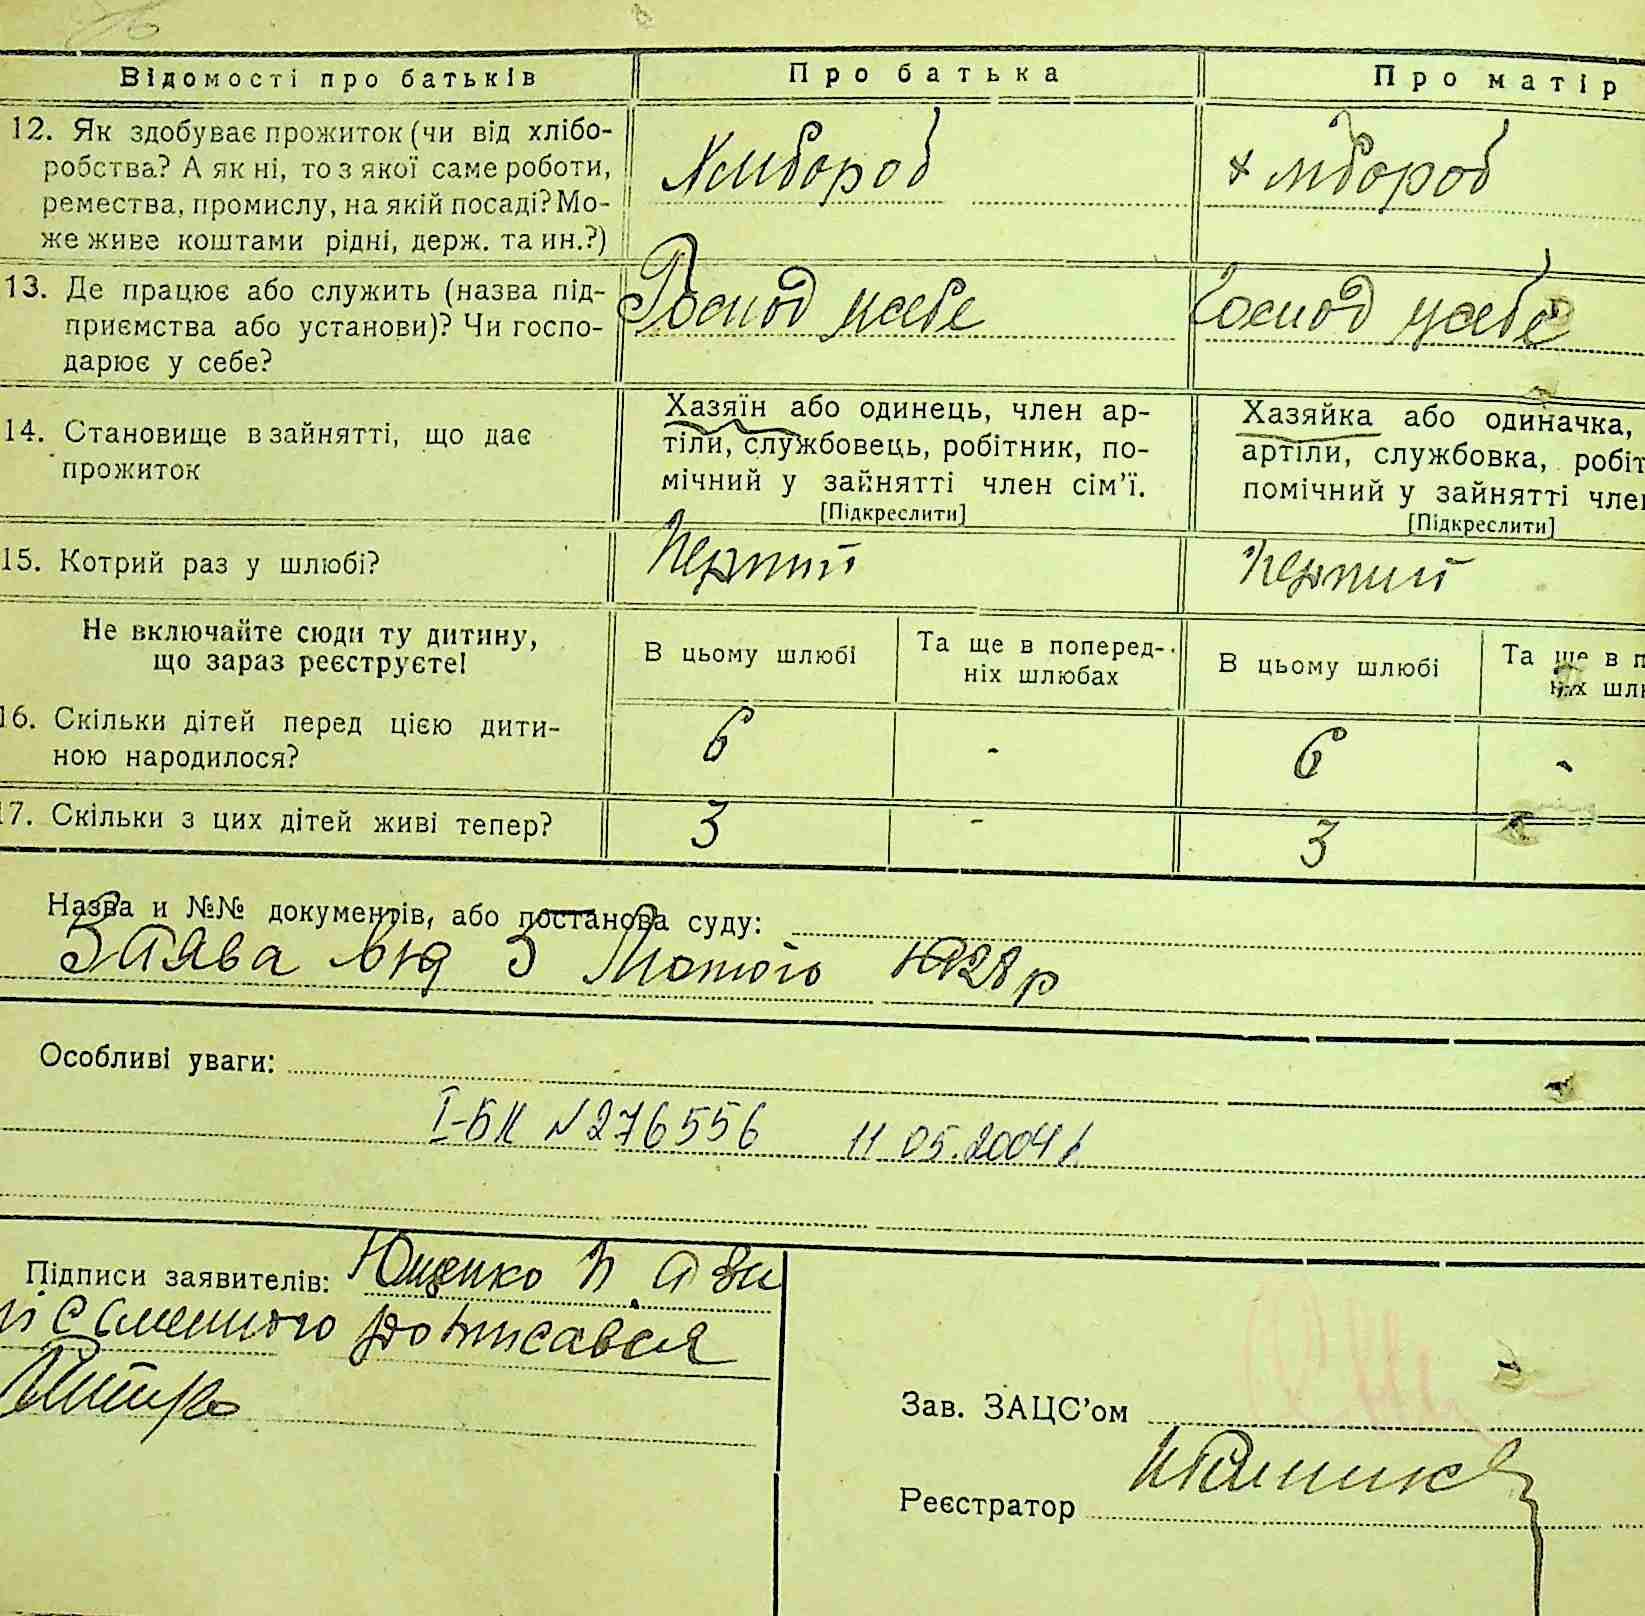 Відомості про батьків
Про батька
Про матір
12. Як здобуває прожиток (чи від хлібо-
робства? А як ні, то з якої саме роботи,
ремества, промислу, на якій посаді? Мо-
же живе коштами рідні, держ. та ин.?)
Хлібороб
Хлібороб
13. Де працює або служить (назва під-
приємства або установи)? Чи госпо-
дарює у себе?
Господ усебе
Господ усебе
14. Становище в зайнятті, що дає
прожиток
Хазяїн або одинець, член ар-
тіли, службовець, робітник, по-
мічний у зайнятті член сім'ї.
[Підкреслити]
Хазяйка або одиначка,
артіли, службовка, робіт
помічний у зайнятті член
[Підкреслити]
15. Котрий раз у шлюбі?
Перший
Перший
Не включайте сюди ту дитину,
що зараз реєструєте!
В цьому шлюбі
Та ще в поперед-
ніх шлюбах
В цьому шлюбі
Та ще в п
ніх шлю
16. Скільки дітей перед цією дити-
ною народилося?
6 - 6 -
17. Скільки з цих дітей живі тепер?
3 - 3
Назва и №№ документів, або постанова суду:
Заява від 3 Лютого 1928 р
Особливі уваги:
І-БК №276556 11.05.2004
Підписи заявителів: Ющенко П. а за
розписався
Зав. ЗАЦС'ом
Реєстратор